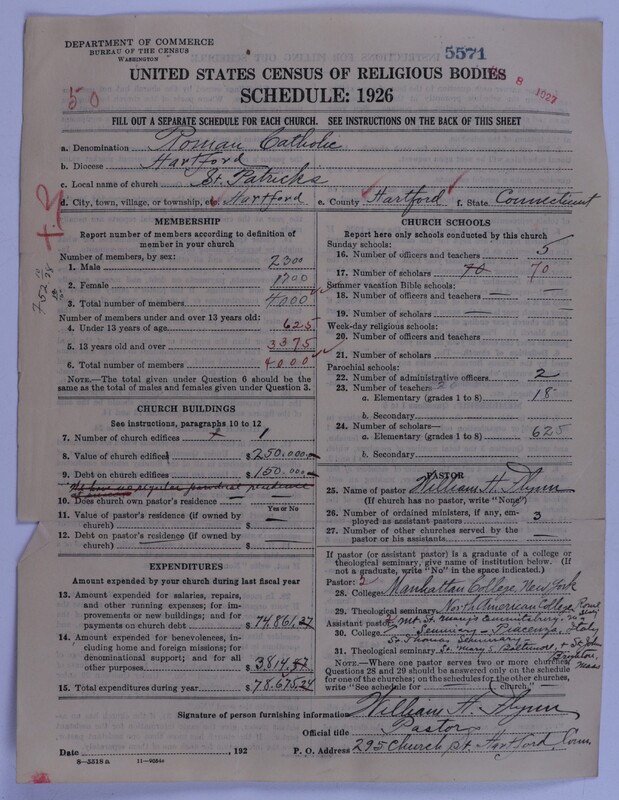 DEPARTMENT OF COMMERCE
BUREAU OF THE CENSUS
WASHINGTON
5571
8 1927
50
UNITED STATES CENSUS OF RELIGIOUS BODIES
SCHEDULE: 1926
FILL OUT A SEPARATE SCHEDULE FOR EACH CHURCH. SEE INSTRUCTIONS ON THE BACK OF THIS SHEET
a. Denomination Roman Catholic
b. Diocese Hartford
c. Local name of church St. Patricks
d. City, town, village, or township, or Hartford e. County Hartford f. State Connecticut
MEMBERSHIP
Report number of members according to definition of member in your church
Number of members, by sex:
1. Male 2300
2. Female 1700
3. Total number of members 4000
Number of members under and over 13 years old:
4. Under 13 years of age 625
5. 13 years old and over 3375
6. Total number of members 4000
NOTE.—The total given under Question 6 should be
same as the total of males and females given under Question 3.
CHURCH BUILDINGS
See instructions, paragraphs 10 to 12
7. Number of church edifices 1
8. Value of church edifices $ 250.000
9. Debt on church edifices $ 150.000
10. Does church own pastor's residence
Yes or No
11. Value of pastor's residence (if owned by
church) $
12. Debt on pastor's residence (if owned by
church) $
EXPENDITURES
Amount expended by your church during last fiscal year
13. Amount expended for salaries, repairs,
and other running expenses; for im-
provements or new buildings; and for
payments on church debt $ 74,861.27
14. Amount expended for benevolences, in-
cluding home and foreign missions; for
denominational support; and for all
other purposes $ 3814.47
15. Total expenditures during year $ 78,675.24
CHURCH SCHOOLS
Report here only schools conducted by this church
Sunday schools:
16. Number of officers and teachers 5
17. Number of scholars 70 70
Summer vacation Bible schools:
18. Number of officers and teachers —
19. Number of scholars —
Week-day religious schools:
20. Number of officers and teachers
21. Number of scholars
Parochial schools:
22. Number of administrative officers 2
23. Number of teachers—
a. Elementary (grades 1 to 8) 18
b. Secondary
24. Number of scholars—
a. Elementary (grades 1 to 8) 625
b. Secondary
PASTOR
25. Name of pastor William H. Flynn
(If church has no pastor, write "None")
26. Number of ordained ministers, if any, em-
ployed as assistant pastors 3
27. Number of other churches served by the
pastor or his assistants
If pastor (or assistant pastor) is a graduate of a college or
theological seminary, give name of institution below. (If
not a graduate, write "No" in the space indicated.)
Pastor: 2
28. College Manhattan College, New York
29. Theological seminary North American College Rome
Assistant pastor: Mt. St. Mary's Emmitsburg
30. College Seminary - Piacenza, Italy
St. Thomas Seminary
31. Theological seminary St. Mary's Baltimore, + St. John
Mass
NOTE.—Where one pastor serves two or more churches,
Questions 28 and 29 should be answered only on the schedule
for one of the churches; on the schedules for the other churches,
write "See schedule for church"
Signature of person furnishing information William H. Flynn
Official title Pastor
Date , 192 P. O. Address 295 Church St. Hartford, Conn.
8—5518 a